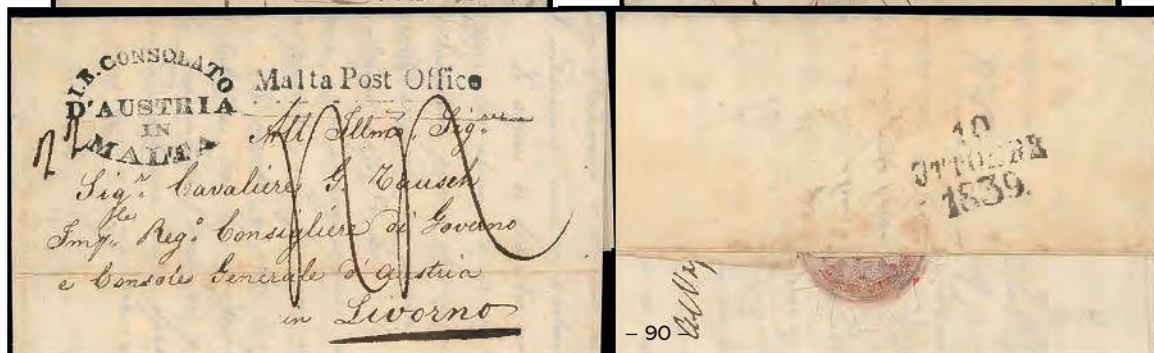 I.R. CONSOLATO
D'AUSTRIA
IN
MALTA
Malta Post Office
All' Illmo. Sigr.
Sigr. Cavaliere G.
Reg. Consigliere di Governo
e Console Generale d'Austria
in Livorno
10
OTTOBRE
1839.
– 90 –